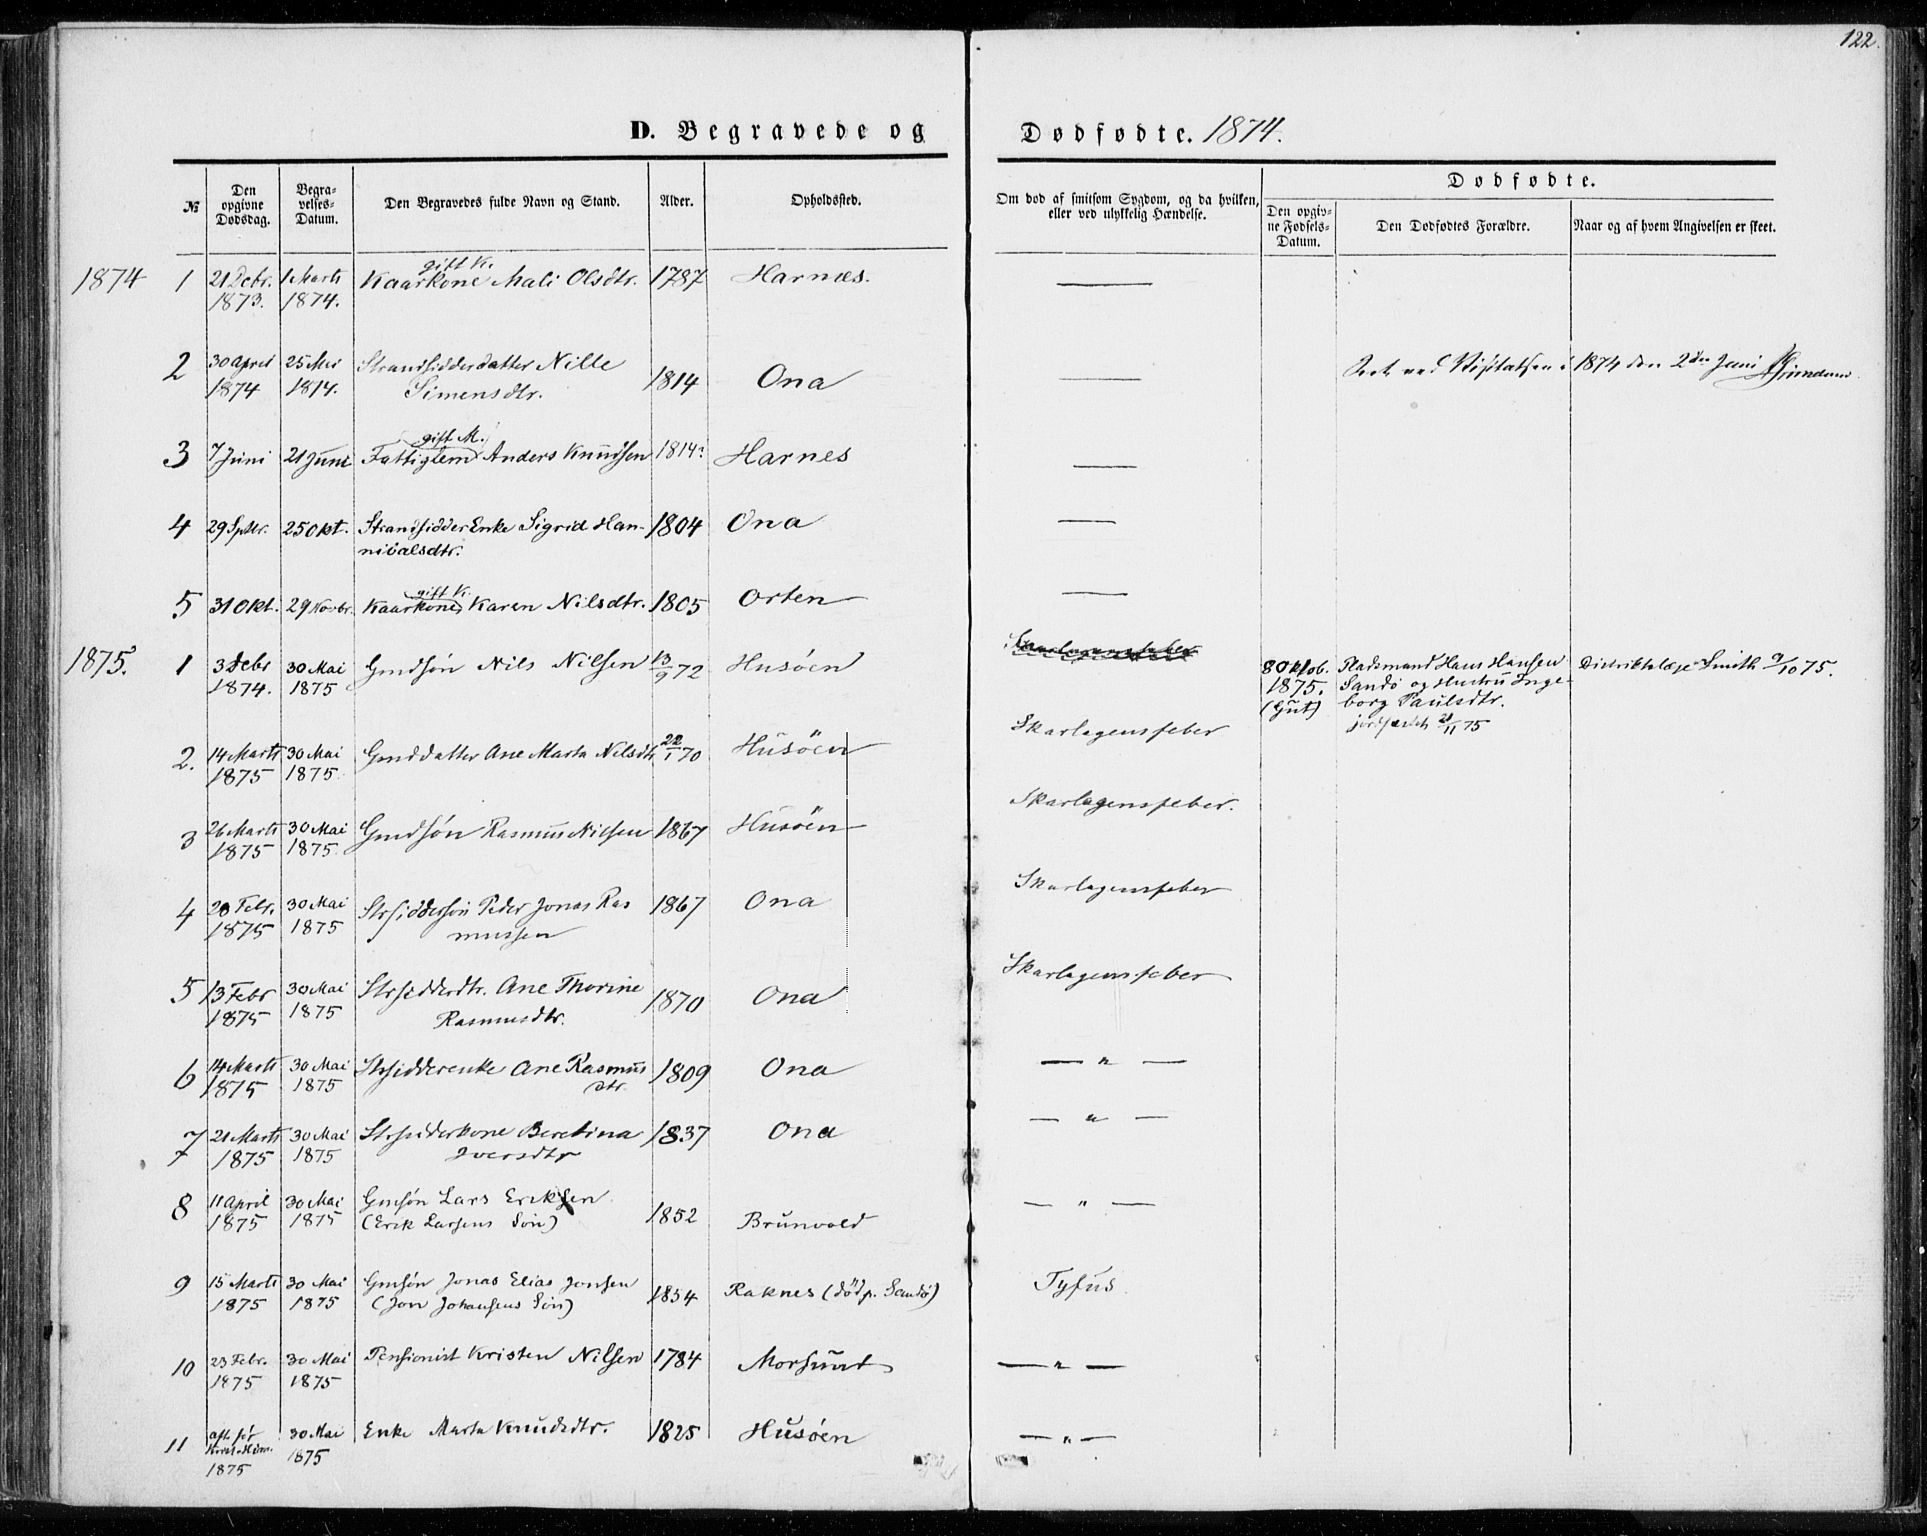 122.
D. Begravede og Dødfødte. 1874.
№ Den opgivne Dødsdag. Begravelses-Datum. Den Begravedes fulde Navn og Stand. Alder. Opholdssted. Om død af smitsom Sygdom, og da hvilken, eller ved ulykkelig Hændelse.
Dødfødte.
Den opgivne Fødsels-Datum. Den Dødfødtes Forældre. Naar og af hvem Angivelsen er skeet.
gift K.
1874 1 21 Debr. 1 Marts Kaarkone Mali Olsdtr. 1787 Harnæs. —
1873. 1874.
2 30 April 25 Mai Strandsidderdatter Nille 1814 Ona —
1874 1814. Simensdtr.
Seet ved Visitatsen i 1874 den 2den Juni
gift M.
3 7 Juni 21 Juni Fattiglem Anders Knudsen 1814? Harnes —
4 29 Sptbr. 25 Okt. Strandsidder Enke Sigrid Han- 1804 Ona —
nibalsdtr.
gift K.
5 31 Okt. 29 Novbr. Kaarkone Karen Nilsdtr. 1805 Orten —
1875. 1 3 Debr 30 Mai Gmdsøn Nils Nilsen 13/9 72 Husöen Skarlagensfeber
1874. 1875
8 Oktob. Pladsmand Hans Hansen Distriktslæge Smith 9/10 75.
1875. Sandö og Hustru Inge-
(Gut) borg Paulsdtr.
jordfæstet 21/11 75
2. 14 Marts 30 Mai Gmddatter Ane Marta Nilsdtr 22/1 70 Husöen Skarlagensfeber
1875 1875
3 26 Marts 30 Mai Gmdsøn Rasmus Nilsen 1867 Husöen Skarlagensfeber.
1875 1875
4 20 Febr. 30 Mai Strsiddersøn Peder Jonas Ras 1867 Ona Skarlagensfeber
1875 1875 mussen
5 13 Febr 30 Mai Strsidderdtr. Ane Thorine 1870 Ona Skarlagensfeber
1875 1875 Rasmusdtr.
6 14 Marts 30 Mai Strsidderenke Ane Rasmus 1809 Ona — " —
1875 1875 dtr.
7 21 Marts 30 Mai Strsidderkone Beretina 1837 Ona — " —
1875 1875 Iversdtr
8 11 April 30 Mai Gmsøn Lars Eriksen 1852 Brunvold — " —
1875 1875 (Erik Larsens Søn)
9 15 Marts 30 Mai Gmsøn Jonas Elias Jonsen 1854 Raknes (død p. Sandö) Tyfus
1875 1875 (Jon Johansens Søn)
10 23 Febr. 30 Mai Pensionist Kristen Nilsen 1784 Morsund — " —
1875 1875
11 aft. før 30 Mai Enke Marta Knudsdtr. 1825 Husøen — " —
Krist. Him. 1875
1875